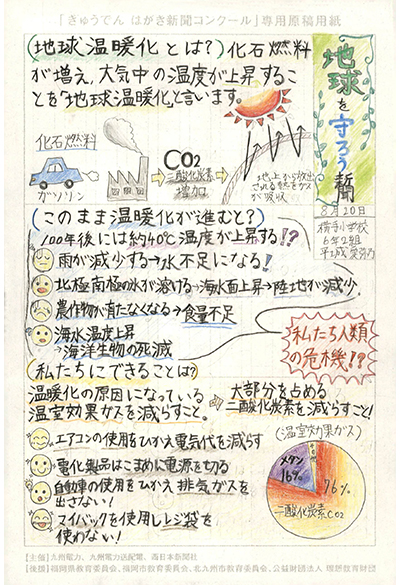 「きゅうでん はがき新聞コンクール」専用原稿用紙
地球を守ろう新聞
8月20日
小学校
6年2組
(地球温暖化とは?)化石燃料
が増え、大気中の温度が上昇するこ
とを「地球温暖化」と言います。
化石燃料
ガソリン
CO2
二酸化炭素
増加
地上から放出
される熱をガス
が吸収
(このまま温暖化が進むと?)
100年後には約4.0℃温度が上昇する!?
雨が減少する→水不足になる!
北極、南極の氷が溶ける→海水面上昇→陸地が減少。
農作物が育たなくなる→食量不足
海水温度上昇
→海洋生物の死滅
私たち人類
の危機!?
(私たちにできることは?)
温暖化の原因になっている
温室効果ガスを減らすこと。
大部分を占める
二酸化炭素を減らすこと!
エアコンの使用をひかえ電気代を減らす
電化製品はこまめに電源を切る
自動車の使用をひかえ排気ガスを
出さない!
マイバックを使用しレジ袋を
使わない!
(温室効果ガス)
メタン
16%
その他
76%
二酸化炭素CO2
【主催】九州電力、九州電力送配電、西日本新聞社
【後援】福岡県教育委員会、福岡市教育委員会、北九州市教育委員会、公益財団法人 理想教育財団